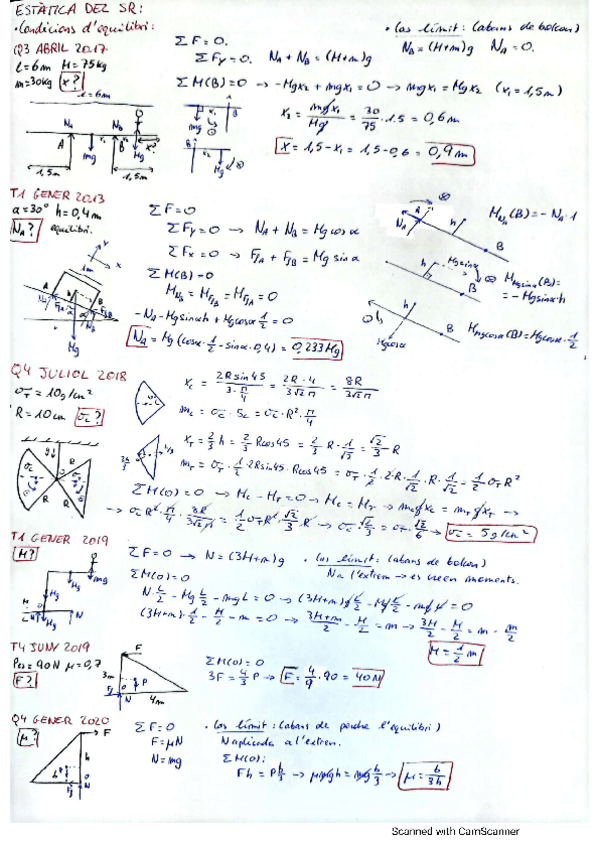 ESTÀTICA DEL SR:
· Condicions d'equilibri:
ΣF=0.
· Cas límit: (abans de bolcar)
Q3 ABRIL 2017
ΣFy=0. NA+NB=(M+m)g
NB=(M+m)g NA=0.
L=6m M=75kg
m=30kg x?
ΣM(B)=0 → -Mgx2+mgx1=0 → mgx1=Mgx2 (x1=1,5m)
L=6m
x2 = mgx1/Mg = 30/75 · 1.5 = 0,6m
x = 1,5-x1 = 1,5-0,6 = 0,9m
NA NB x1 x?
A mg B Mg
1,5m 1,5m
T1 GENER 2013
α=30° h=0,4m
NA? equilibri.
ΣF=0
ΣFy=0 → NA+NB=Mgcosα
ΣFx=0 → FfA+FfB=Mgsinα
ΣM(B)=0
MNB=MFfB=MFfA=0
-NA-Mgsinαh+Mgcosα 1/2=0
NA=Mg(cosα·1/2-sinα·0,4)=0,233Mg
MNA(B)=-NA·1
MMgsinα(B)=
=-Mgsinαh
MMgcosα(B)=Mgcosα·1/2
Q4 JULIOL 2018
σT=10g/cm²
R=10cm σc?
xc = 2Rsin45/3·π/4 = 2R·4/3√2π = 8R/3√2π
mc=σc·Sc=σc·R²·π/4
xT=2/3 h=2/3 Rcos45=2/3 R·1/√2=√2/3 R
mT=σT·1/2·2Rsin45·Rcos45=σT·1/2·2R·1/√2·R·1/√2=1/2σTR²
ΣM(O)=0 → Mc-MT=0 → Mc=MT → mcgxc=mTgxT →
→ σcR²·π/4·8R/3√2π=1/2σTR²·√2/3·R → σc·√2/3=σT·√2/6 → σc=5g/cm²
T1 GENER 2019
M?
ΣF=0 → N=(3M+m)g
· Cas límit: (abans de bolcar)
N a l'extrem → es veu en moments.
ΣM(O)=0
N·L/2-Mg L/2-mgL=0 → (3M+m)g L/2-Mg L/2-mgL=0
(3M+m)·1/2-M/2-m=0 → 3M+m/2-M/2=m → 3M/2-M/2=m-m/2
M=1/2m
T4 JUNY 2019
Pes=90N μ=0,7
F?
ΣM(O)=0
3F=4/3P → F=4/9·90=40N
3m 4m
Q4 GENER 2020
μ?
ΣF=0
F=μN
N=mg
· Cas límit: (abans de perdre l'equilibri)
N aplicada a l'extrem.
ΣM(O):
Fh=P b/3 → μmgh=mg b/3 → μ=b/3h
Scanned with CamScanner